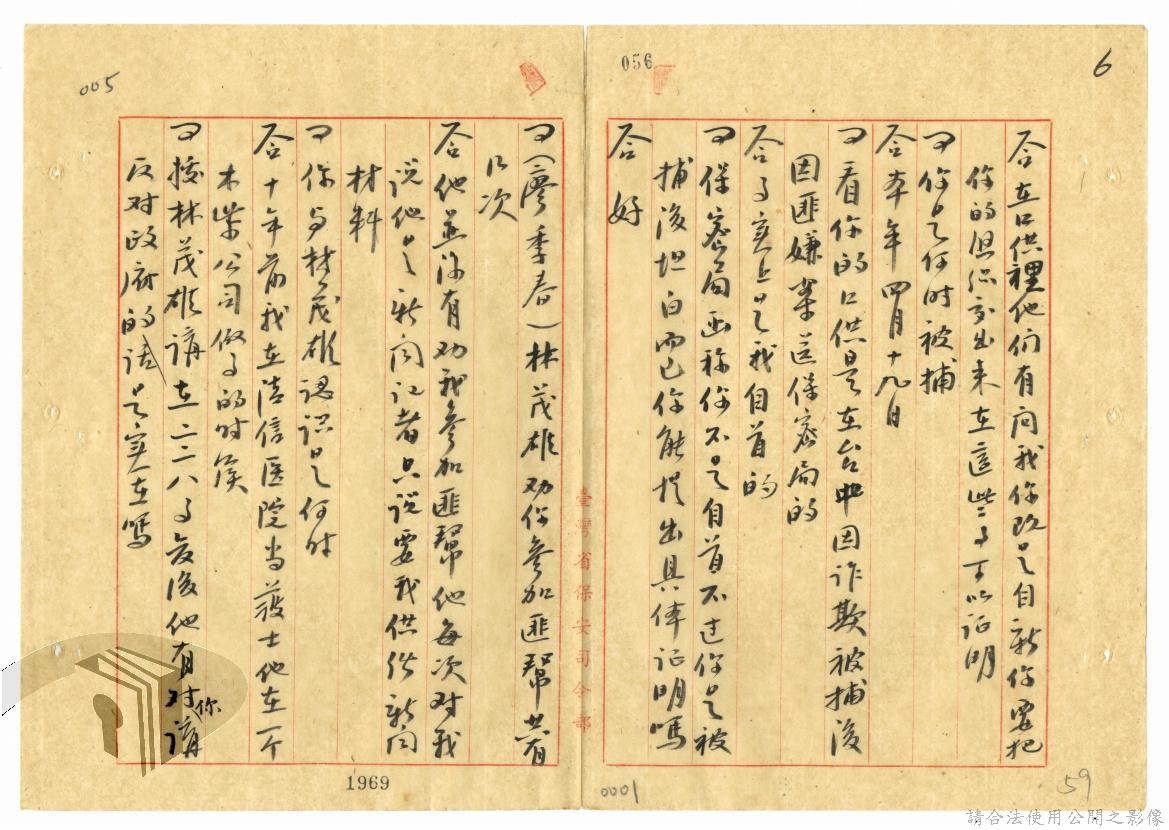 005
056
6
答在口供裡他们有问我你既是自新你要把
你的组织交出来在這些事可以证明
问你是何时被捕
答本年四月十九日
问看你的口供是在台中因诈欺被捕後
因匪嫌案送保密局的
答事实上是我自首的
问保密局函称你不是自首不过你是被
捕後坦白而已你能提出具体证明吗
答好
臺灣省保安司令部
问(廖季春)林茂雄劝你参加匪帮共有
几次
答他並没有劝我参加匪帮他每次对我
说他是新闻记者只说要我供给新闻
材料
问你与林茂雄认识是何时
答十年前我在清信医院当護士他在一个
木柴公司做事的时候
问據林茂雄講在二二八事变後他有对你講
反对政府的话是实在嗎
1969
0001
59
請合法使用公開之影像